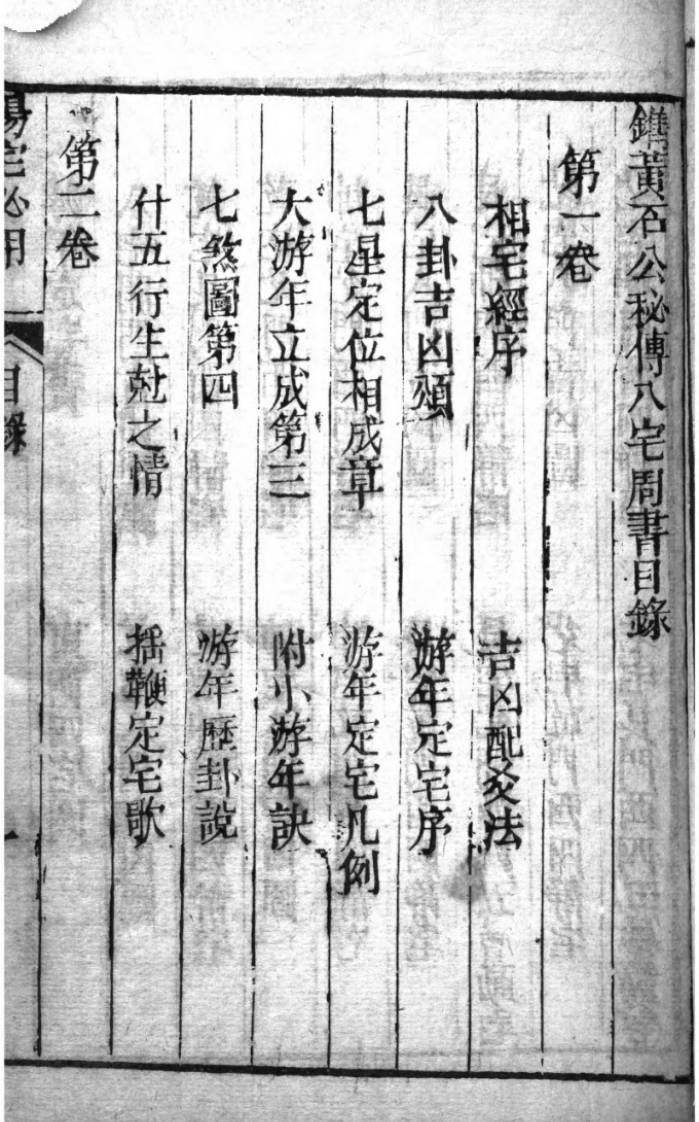 鐫黃石公秘傳八宅周書目錄
第一卷
相宅經序
吉凶配爻法
八卦吉凶頌
游年定宅序
七星定位相成章
游年定宅凡例
大游年立成第三
附小游年訣
七煞圖第四
游年歷卦說
什五行生尅之情
揺鞭定宅歌
第二卷
陽宅必用
目錄
一